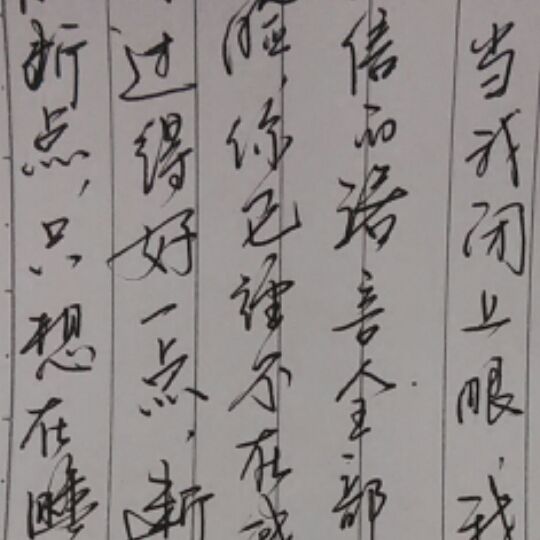 当我闭上眼，我
信的诺言全部
你已经不在
过得好一点，渐
折点，只想在睡